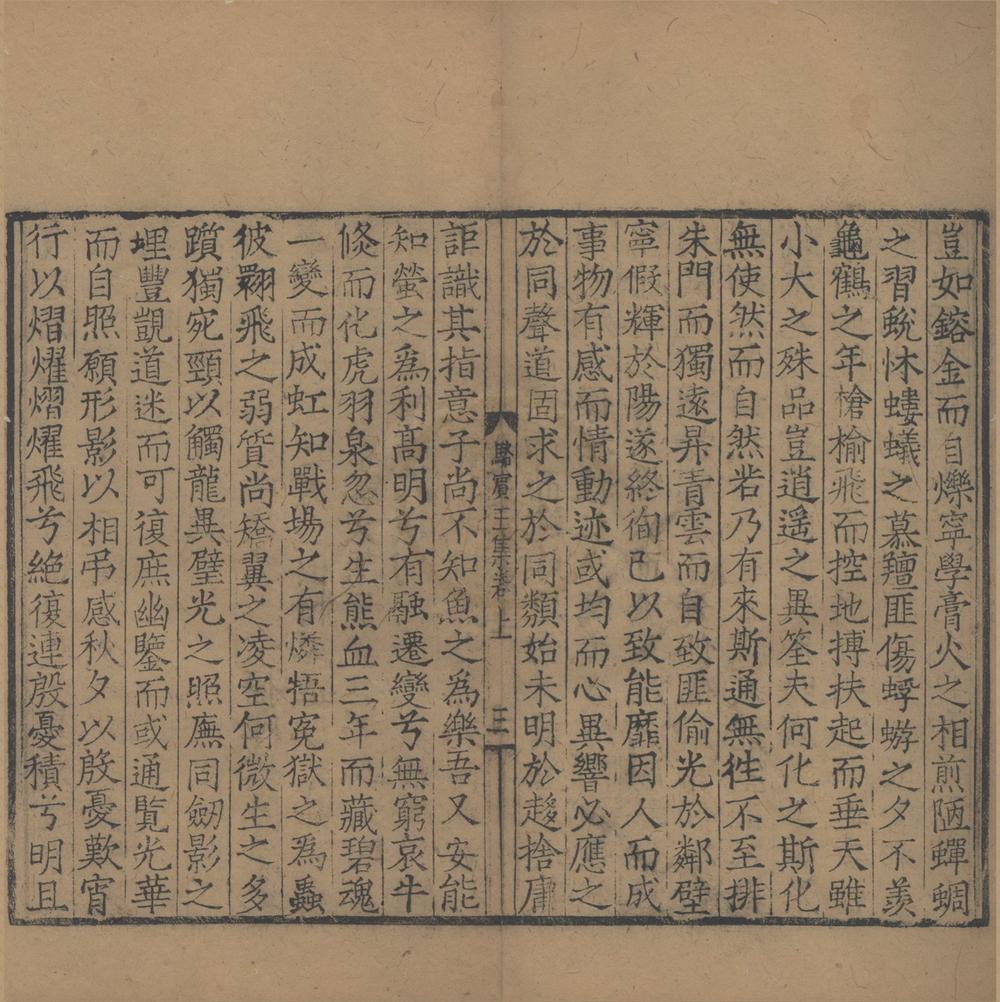 豈如鎔金而自爍寧學膏火之相煎陋蟬蜩
之習蛻怵螻蟻之慕羶匪傷蜉蝣之夕不羨
龜鶴之年槍榆飛而控地摶扶起而垂天雖
小大之殊品豈逍遥之異筌夫何化之斯化
無使然而自然若乃有來斯通無徃不至排
朱門而獨遠昇青雲而自致匪偷光於鄰壁
寧假輝於陽遂終徇己以致能靡因人而成
事物有感而情動迹或均而心異響必應之
於同聲道固求之於同類始未明於趍捨庸
駱賓王集卷上
三
詎識其指意子尚不知魚之為樂吾又安能
知螢之為利高明兮有融遷變兮無窮哀牛
倐而化虎羽泉忽兮生熊血三年而藏碧魂
一變而成虹知戰場之有燐悟冤獄之為蟲
彼翾飛之弱質尚矯翼之凌空何微生之多
躓獨宛頸以觸龍異璧光之照廡同劒影之
埋豐覬道迷而可復庶幽鑒而或通覽光華
而自照願形影以相弔感秋夕以殷憂歎宵
行以熠燿熠燿飛兮絶復連殷憂積兮明且